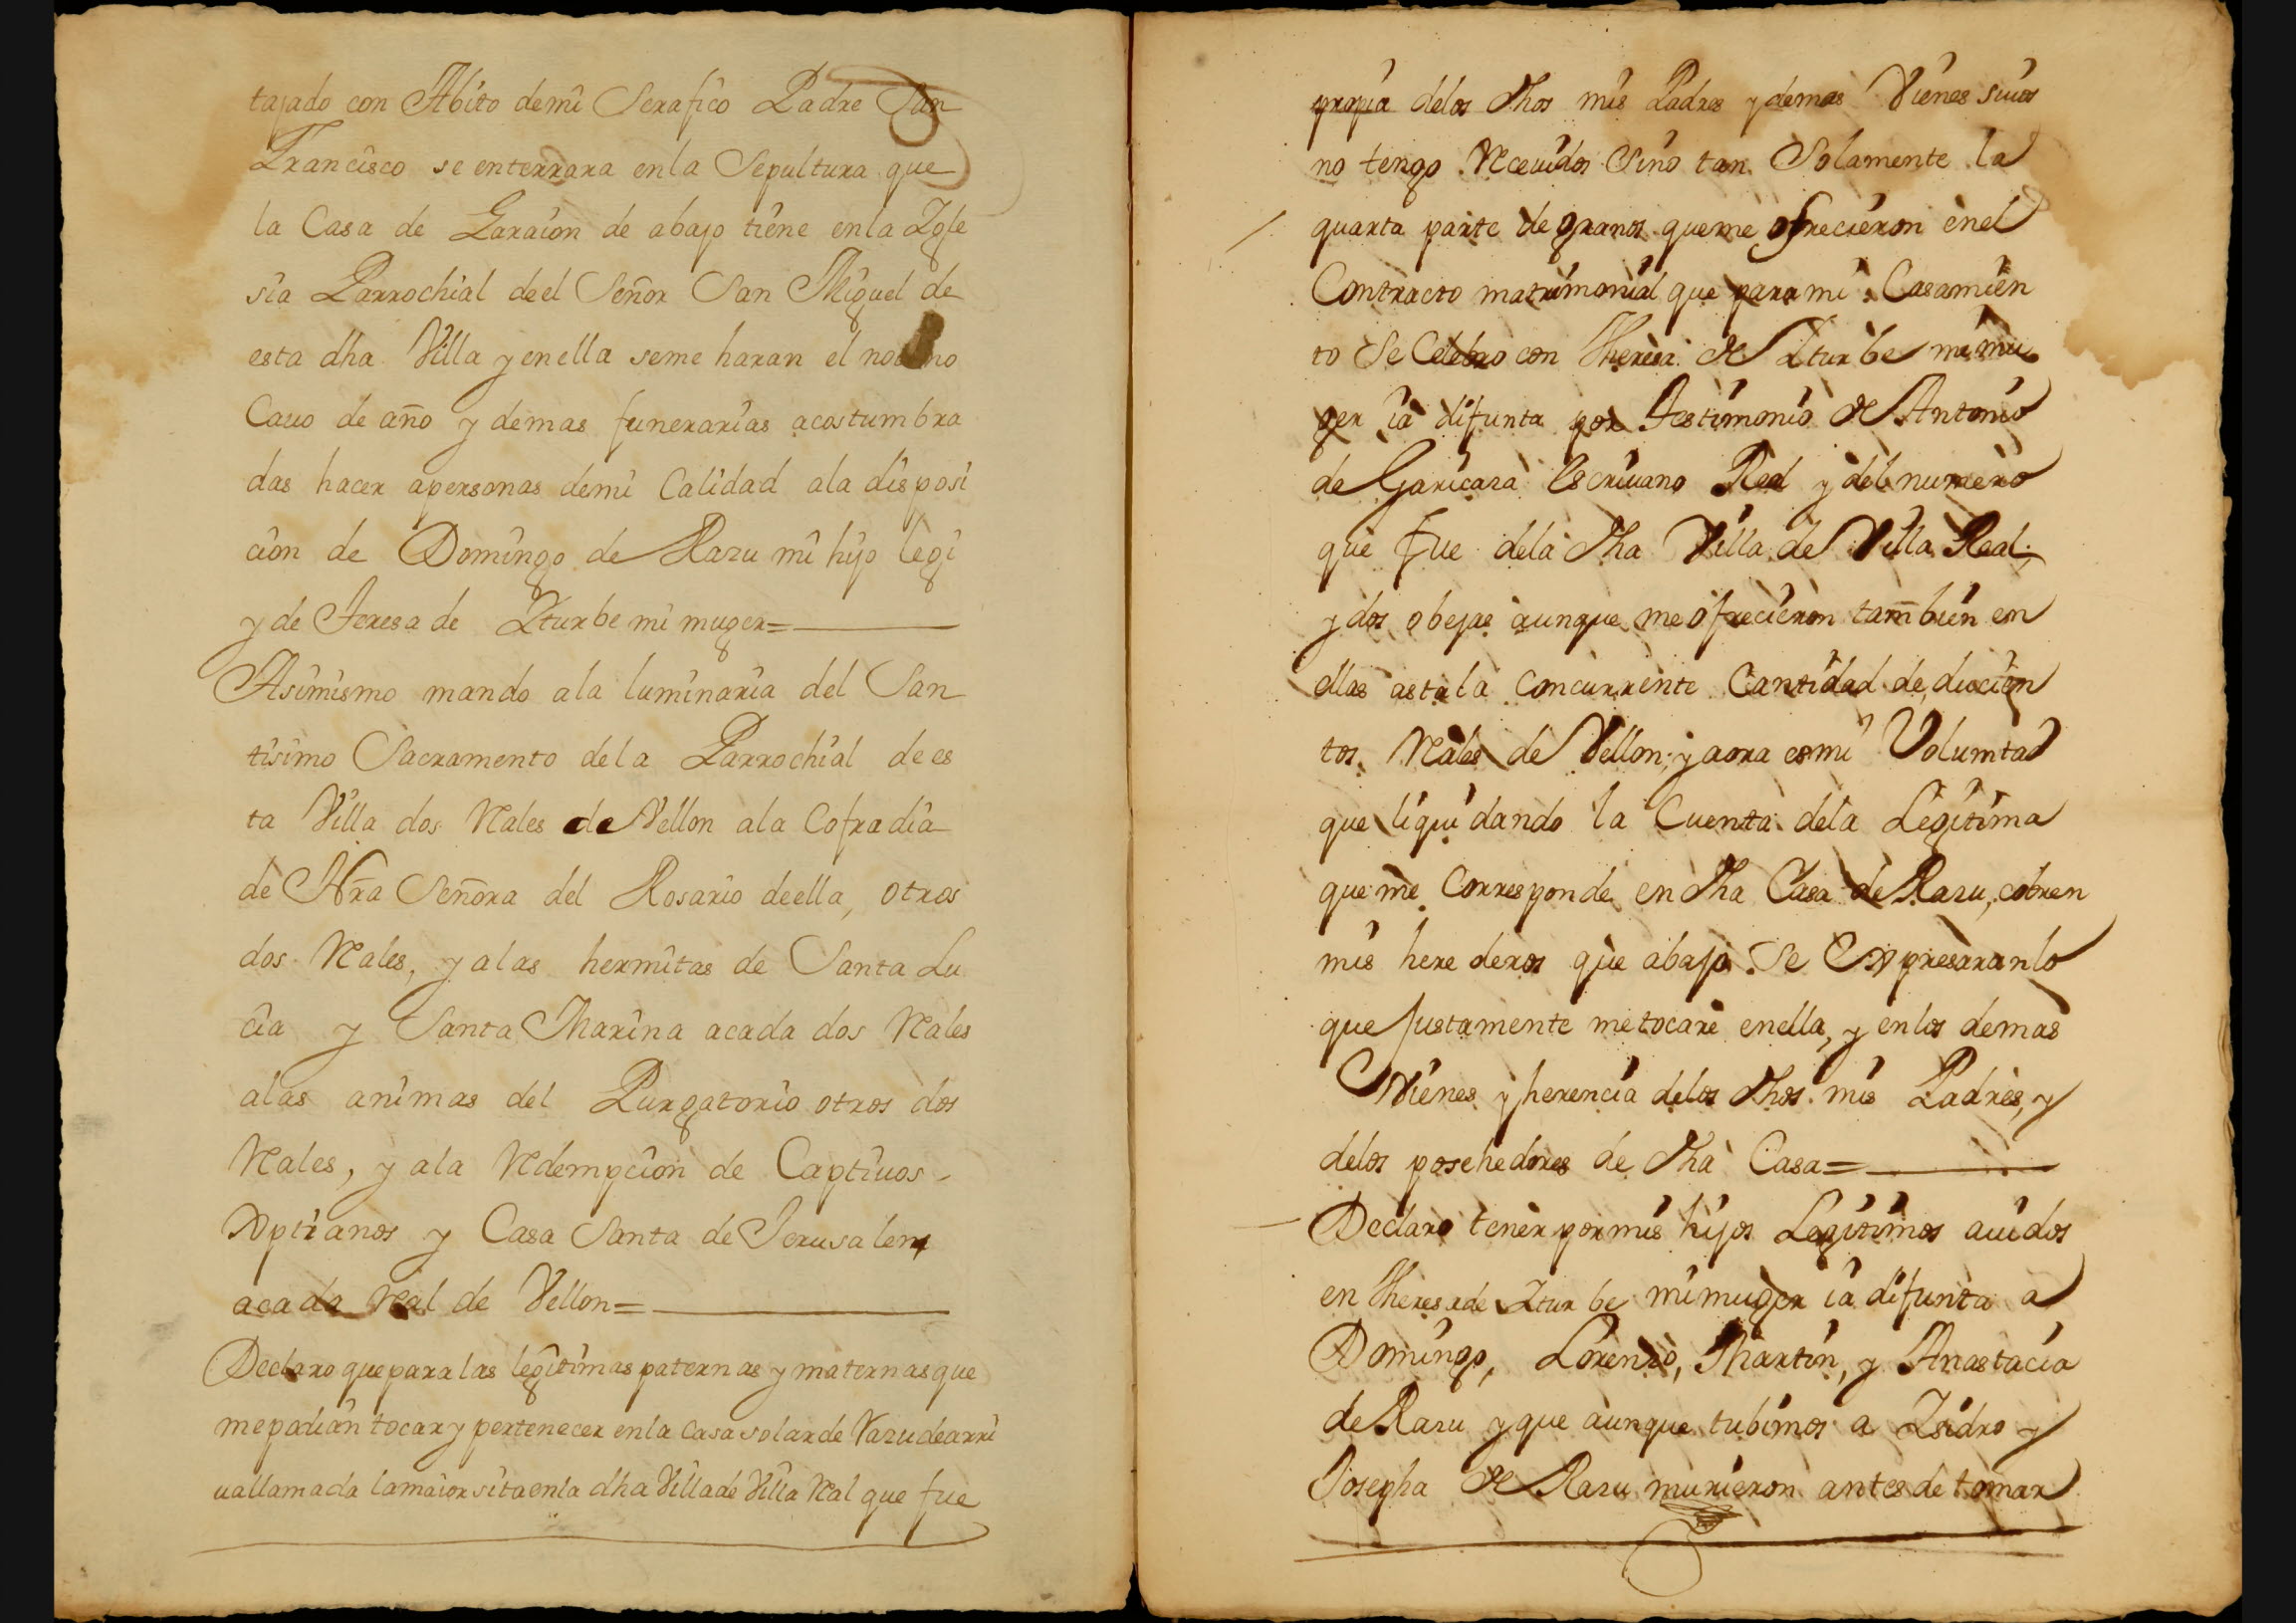 tajado con Abito demi Serafico Padre San
Francisco se enterrara enla Sepultura que
la Casa de Garaion de abajo tiene enla Igle
sia Parrochial deel Señor San Miguel de
esta dha Villa y enella seme haran el
Cauo de año y demas funerarias acostumbra
das hacer apersonas demi Calidad ala disposi
cion de Domingo de Razu mi hijo legi
y de Teresa de Iturbe mi muger=
Asimismo mando ala luminaria del San
tisimo Sacramento dela Parrochial de es
ta Villa dos Rales de Vellon ala Cofradia
de Nra Señora del Rosario deella, otros
dos Rales, y alas hermitas de Santa Lu
cia y Santa Marina acada dos Rales
alas animas del Purgatorio otros dos
Rales, y ala Redempcion de Captiuos
Xptianos y Casa Santa de Jerusalem
acada Ral de Vellon=
Declaro que para las legitimas paternas y maternas que
me podian tocar y pertenecer enla casa solar de Razu de arri
ua llamada la maior sita enla dha Villa de Villa Ral que fue
propia delos dhos mis Padres y demas Vienes suios
no tengo Receuidos Sino tan Solamente la
quarta parte de granos queme ofrecieron enel
Contracto matrimonial que para mi Casamien
to Se Celebro con Theresa de Iturbe mi mu
ger ia difunta por Testimonio de Antonio
de Garicara Escriuano Real y del numero
que fue dela dha Villa de Villa Real,
y dos obejas aunque me ofrecieron tambien en
ellas asta la Concurrente Cantidad de ducien
tos Rales de Vellon; y aora es mi Voluntad
que liquidando la Cuenta dela Legitima
que me Corresponde en dha Casa de Razu, cobren
mis herederos que abajo Se Expresaran lo
que Justamente me tocare enella, y enlos demas
Vienes y herencia delos dhos mis Padres, y
delos posehedores de dha Casa=
Declaro tener por mis hijos Legitimos auidos
en Theresa de Iturbe mi muger ia difunta a
Domingo, Lorenzo, Martin, y Anastacia
de Razu y que aunque tubimos a Isidro y
Josepha de Razu murieron antes de tomar